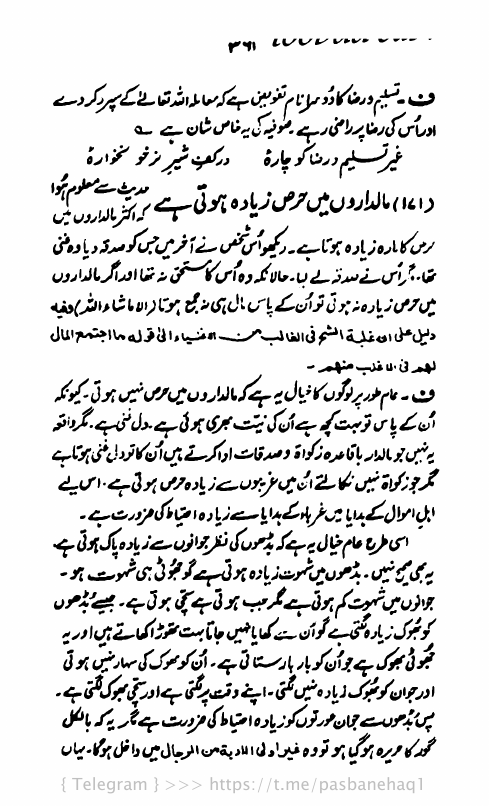 ۳۶۱
ف۔ تسلیم و رضا کا دوسرا نام تفویض ہے کہ معاملہ اللہ تعالیٰ کے سپرد کر دے
اور اُس کی رضا پر راضی رہے۔ صوفیہ کی یہ خاص شان ہے ؎
غیر تسلیم و رضا کو چارۂ در کفِ شیرِ نر خونخوارۂ
(۱۷۱) مالداروں میں حرص زیادہ ہوتی ہے حدیث سے معلوم ہوا
کہ اکثر مالداروں میں
حرص کا مادہ زیادہ ہوتا ہے۔ دیکھو اُس شخص نے آخر میں جس کو صدقہ دیا وہ غنی
تھا۔ مگر اُس نے صدقہ لے لیا۔ حالانکہ وہ اُس کا مستحق نہ تھا اور اگر مالداروں
میں حرص زیادہ نہ ہوتی تو اُن کے پاس مال ہی نہ جمع ہوتا (الا ماشاء اللہ) وفیہ
دلیل علی ان غلبۃ الشح فی الغالب من الاغنیاء الیٰ قولہ ما اجتمع المال
لھم فی الاغلب منھم۔
ف۔ عام طور پر لوگوں کا خیال یہ ہے کہ مالداروں میں حرص نہیں ہوتی۔ کیونکہ
اُن کے پاس تو بہت کچھ ہے اُن کی نیت بھری ہوئی ہے۔ دل غنی ہے۔ مگر واقعہ
یہ نہیں جو مالدار باقاعدہ زکوٰۃ و صدقات ادا کرتے ہیں اُن کا تو دل غنی ہوتا ہے
مگر جو زکوٰۃ نہیں نکالتے اُن میں غریبوں سے زیادہ حرص ہوتی ہے۔ اس لیے
اہلِ اموال کے ہدایا میں غرباء کے ہدایا سے زیادہ احتیاط کی ضرورت ہے۔
اسی طرح عام خیال یہ ہے کہ بڈھوں کی نظر جوانوں سے زیادہ پاک ہوتی ہے
یہ بھی صحیح نہیں۔ بڈھوں میں شہوت زیادہ ہوتی ہے گو جھوٹی ہی شہوت ہو۔
جوانوں میں شہوت کم ہوتی ہے مگر جب ہوتی ہے سچی ہوتی ہے۔ جیسے بُڈھوں
کو بھوک زیادہ لگتی ہے گو اُن سے کھایا نہیں جاتا بہت تھوڑا کھاتے ہیں اور یہ
جھوٹی بھوک ہے جو اُن کو بار بار ستاتی ہے۔ اُن کو بھوک کی سہار نہیں ہوتی
اور جوان کو بھوک زیادہ نہیں لگتی۔ اپنے وقت پر لگتی ہے اور سچی بھوک لگتی ہے۔
پس بُڈھوں سے جوان عورتوں کو زیادہ احتیاط کی ضرورت ہے مگر یہ کہ بالکل
گور کا مردہ ہو گیا ہو تو وہ غیر اولی الاربۃ من الرجال میں داخل ہوگا۔ یہاں
{ Telegram } >>> https://t.me/pasbanehaq1